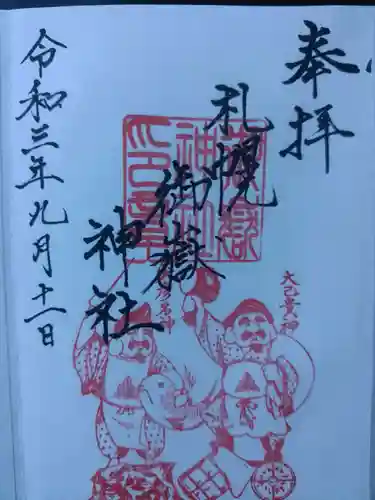 奉拝
札幌
御嶽
神社
令和三年九月十一日
大己貴神